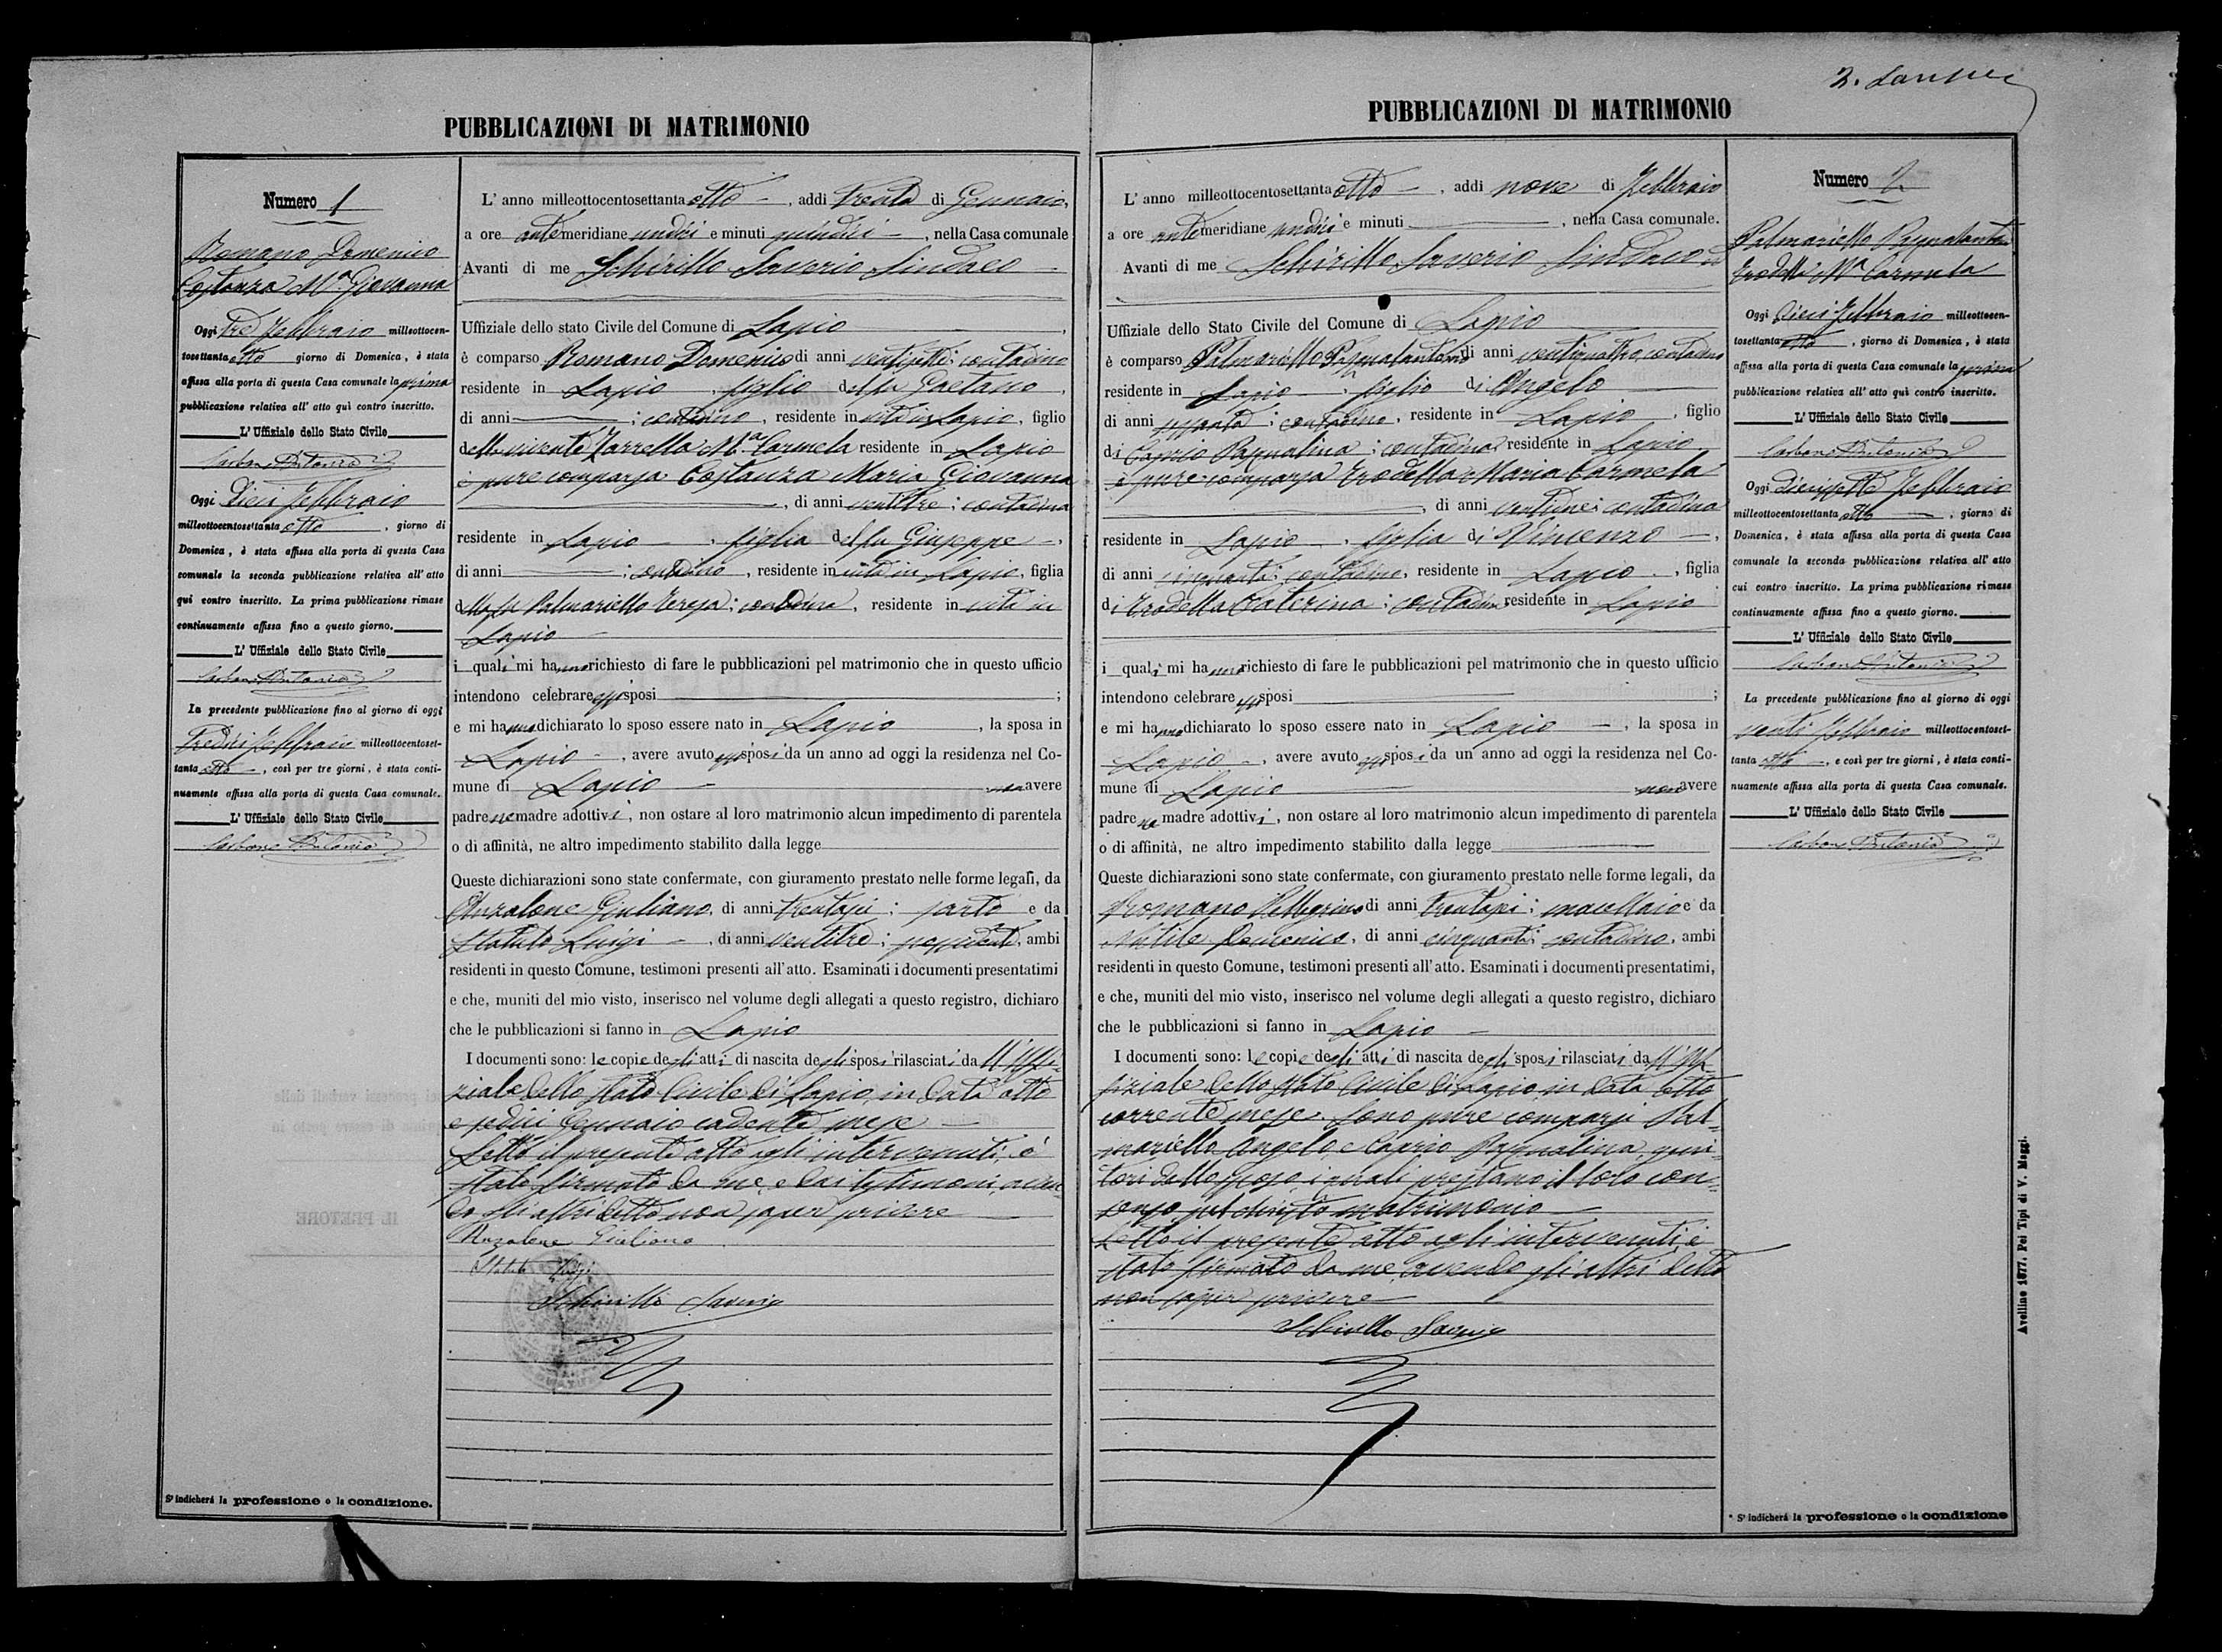 PUBBLICAZIONI DI MATRIMONIO
Numero 1
Romano Domenico
Costanza Mª Giovanna
Oggi tre Febbraio milleottocen-
tosettanta otto giorno di Domenica, è stata
affissa alla porta di questa Casa comunale la prima
pubblicazione relativa all' atto quì contro inscritto.
L' Uffiziale dello Stato Civile
Carbone Antonio
Oggi Dieci Febbraio
milleottocentosettanta otto, giorno di
Domenica, è stata affissa alla porta di questa Casa
comunale la seconda pubblicazione relativa all' atto
qui contro inscritto. La prima pubblicazione rimase
continuamente affissa fino a questo giorno.
L' Uffiziale dello Stato Civile
Carbone Antonio
La precedente pubblicazione fino al giorno di oggi
tredici Febbraio milleottocentoset-
tanta otto, così per tre giorni, è stata conti-
nuamente affissa alla porta di questa Casa comunale.
L' Uffiziale dello Stato Civile
Carbone Antonio
S' indicherà la professione o la condizione.
L' anno milleottocentosettanta otto, addì trenta di Gennaio,
a ore antemeridiane undici e minuti quindici, nella Casa comunale
Avanti di me Schirillo Saverio Sindaco
Uffiziale dello stato Civile del Comune di Lapio,
è comparso Romano Domenico di anni ventisette; contadino
residente in Lapio, figlio del fu Gaetano,
di anni ; contadino, residente in vita in Lapio, figlio
della vivente Zarrella Mª Carmela residente in Lapio
è pure comparsa Costanza Maria Giovanna
, di anni ventitre; contadina
residente in Lapio, figlia del fu Giuseppe,
di anni ; contadino, residente in vita in Lapio, figlia
della fu Palmariello Teresa; contadina, residente in vita in
Lapio
i quali mi hanno richiesto di fare le pubblicazioni pel matrimonio che in questo ufficio
intendono celebrare essi sposi ;
e mi hanno dichiarato lo sposo essere nato in Lapio, la sposa in
Lapio, avere avuto essi sposi da un anno ad oggi la residenza nel Co-
mune di Lapio non avere
padre ne madre adottivi, non ostare al loro matrimonio alcun impedimento di parentela
o di affinità, ne altro impedimento stabilito dalla legge
Queste dichiarazioni sono state confermate, con giuramento prestato nelle forme legali, da
Anzalone Giuliano, di anni trentasei; sarto e da
Statuto Luigi, di anni ventitre; possidente, ambi
residenti in questo Comune, testimoni presenti all' atto. Esaminati i documenti presentatimi
e che, muniti del mio visto, inserisco nel volume degli allegati a questo registro, dichiaro
che le pubblicazioni si fanno in Lapio
I documenti sono: le copie degli atti di nascita degli sposi rilasciati da ll'Uffi-
ziale dello Stato Civile di Lapio in data otto
e sedici Gennaio cadente mese
Letto il presente atto agli intervenuti, è
stato firmato da me, e dai testimoni, aven
do gli altri detto non saper scrivere
Anzalone Giuliano
Statuto Luigi
Schirillo Saverio
PUBBLICAZIONI DI MATRIMONIO
L' anno milleottocentosettanta otto, addì nove di Febbraio
a ore antemeridiane undici e minuti , nella Casa comunale.
Avanti di me Schirillo Saverio Sindaco
Uffiziale dello Stato Civile del Comune di Lapio
è comparso Palmariello Pasqualantonio di anni ventiquattro, contadino
residente in Lapio, figlio di Angelo
di anni ; contadino, residente in Lapio, figlio
di Caprio Pasqualina; contadina residente in Lapio
è pure comparsa Trodella Maria Carmela
, di anni ventune; contadina
residente in Lapio, figlia di Vincenzo,
di anni cinquanta; contadino, residente in Lapio, figlia
di Trodella Caterina; contadina residente in Lapio
i quali mi hanno richiesto di fare le pubblicazioni pel matrimonio che in questo ufficio
intendono celebrare essi sposi ;
e mi hanno dichiarato lo sposo essere nato in Lapio, la sposa in
Lapio, avere avuto essi sposi da un' anno ad oggi la residenza nel Co-
mune di Lapio non avere
padre ne madre adottivi, non ostare al loro matrimonio alcun impedimento di parentela
o di affinità, ne altro impedimento stabilito dalla legge
Queste dichiarazioni sono state confermate, con giuramento prestato nelle forme legali, da
Romano Pellegrino di anni trentasei; macellaio e da
Domenico, di anni cinquanta; contadino, ambi
residenti in questo Comune, testimoni presenti all' atto. Esaminati i documenti presentatimi,
e che, muniti del mio visto, inserisco nel volume degli allegati a questo registro, dichiaro
che le pubblicazioni si fanno in Lapio
I documenti sono: le copie degli atti di nascita degli sposi rilasciati da ll'Uf-
fiziale dello Stato Civile di Lapio in data otto
corrente mese. Sono pure comparsi Pal-
mariello Angelo, e Caprio Pasqualina, geni-
tori dello sposo, i quali prestano il loro con-
senso pel chiesto matrimonio
Letto il presente atto agli intervenuti, è
stato firmato da me, avendo gli altri detto
non saper scrivere
Schirillo Saverio
Numero 2
Palmariello Pasqualantonio
Trodella Mª Carmela
Oggi Dieci Febbraio milleottocen-
tosettanta otto, giorno di Domenica, è stata
affissa alla porta di questa Casa comunale la prima
pubblicazione relativa all' atto quì contro inscritto.
L' Uffiziale dello Stato Civile
Carbone Antonio
Oggi Diecissette Febbraio
milleottocentosettanta otto, giorno di
Domenica, è stata affissa alla porta di questa Casa
comunale la seconda pubblicazione relativa all' atto
cui contro inscritto. La prima pubblicazione rimase
continuamente affissa fino a questo giorno.
L' Uffiziale dello Stato Civile
Carbone Antonio
La precedente pubblicazione fino al giorno di oggi
venti Febbraio milleottocentoset-
tanta otto, e così per tre giorni, è stata conti-
nuamente affissa alla porta di questa Casa comunale.
L' Uffiziale dello Stato Civile
Carbone Antonio
* S' indicherà la professione o la condizione
Avellino 1877. Pei Tipi di V. Maggi.